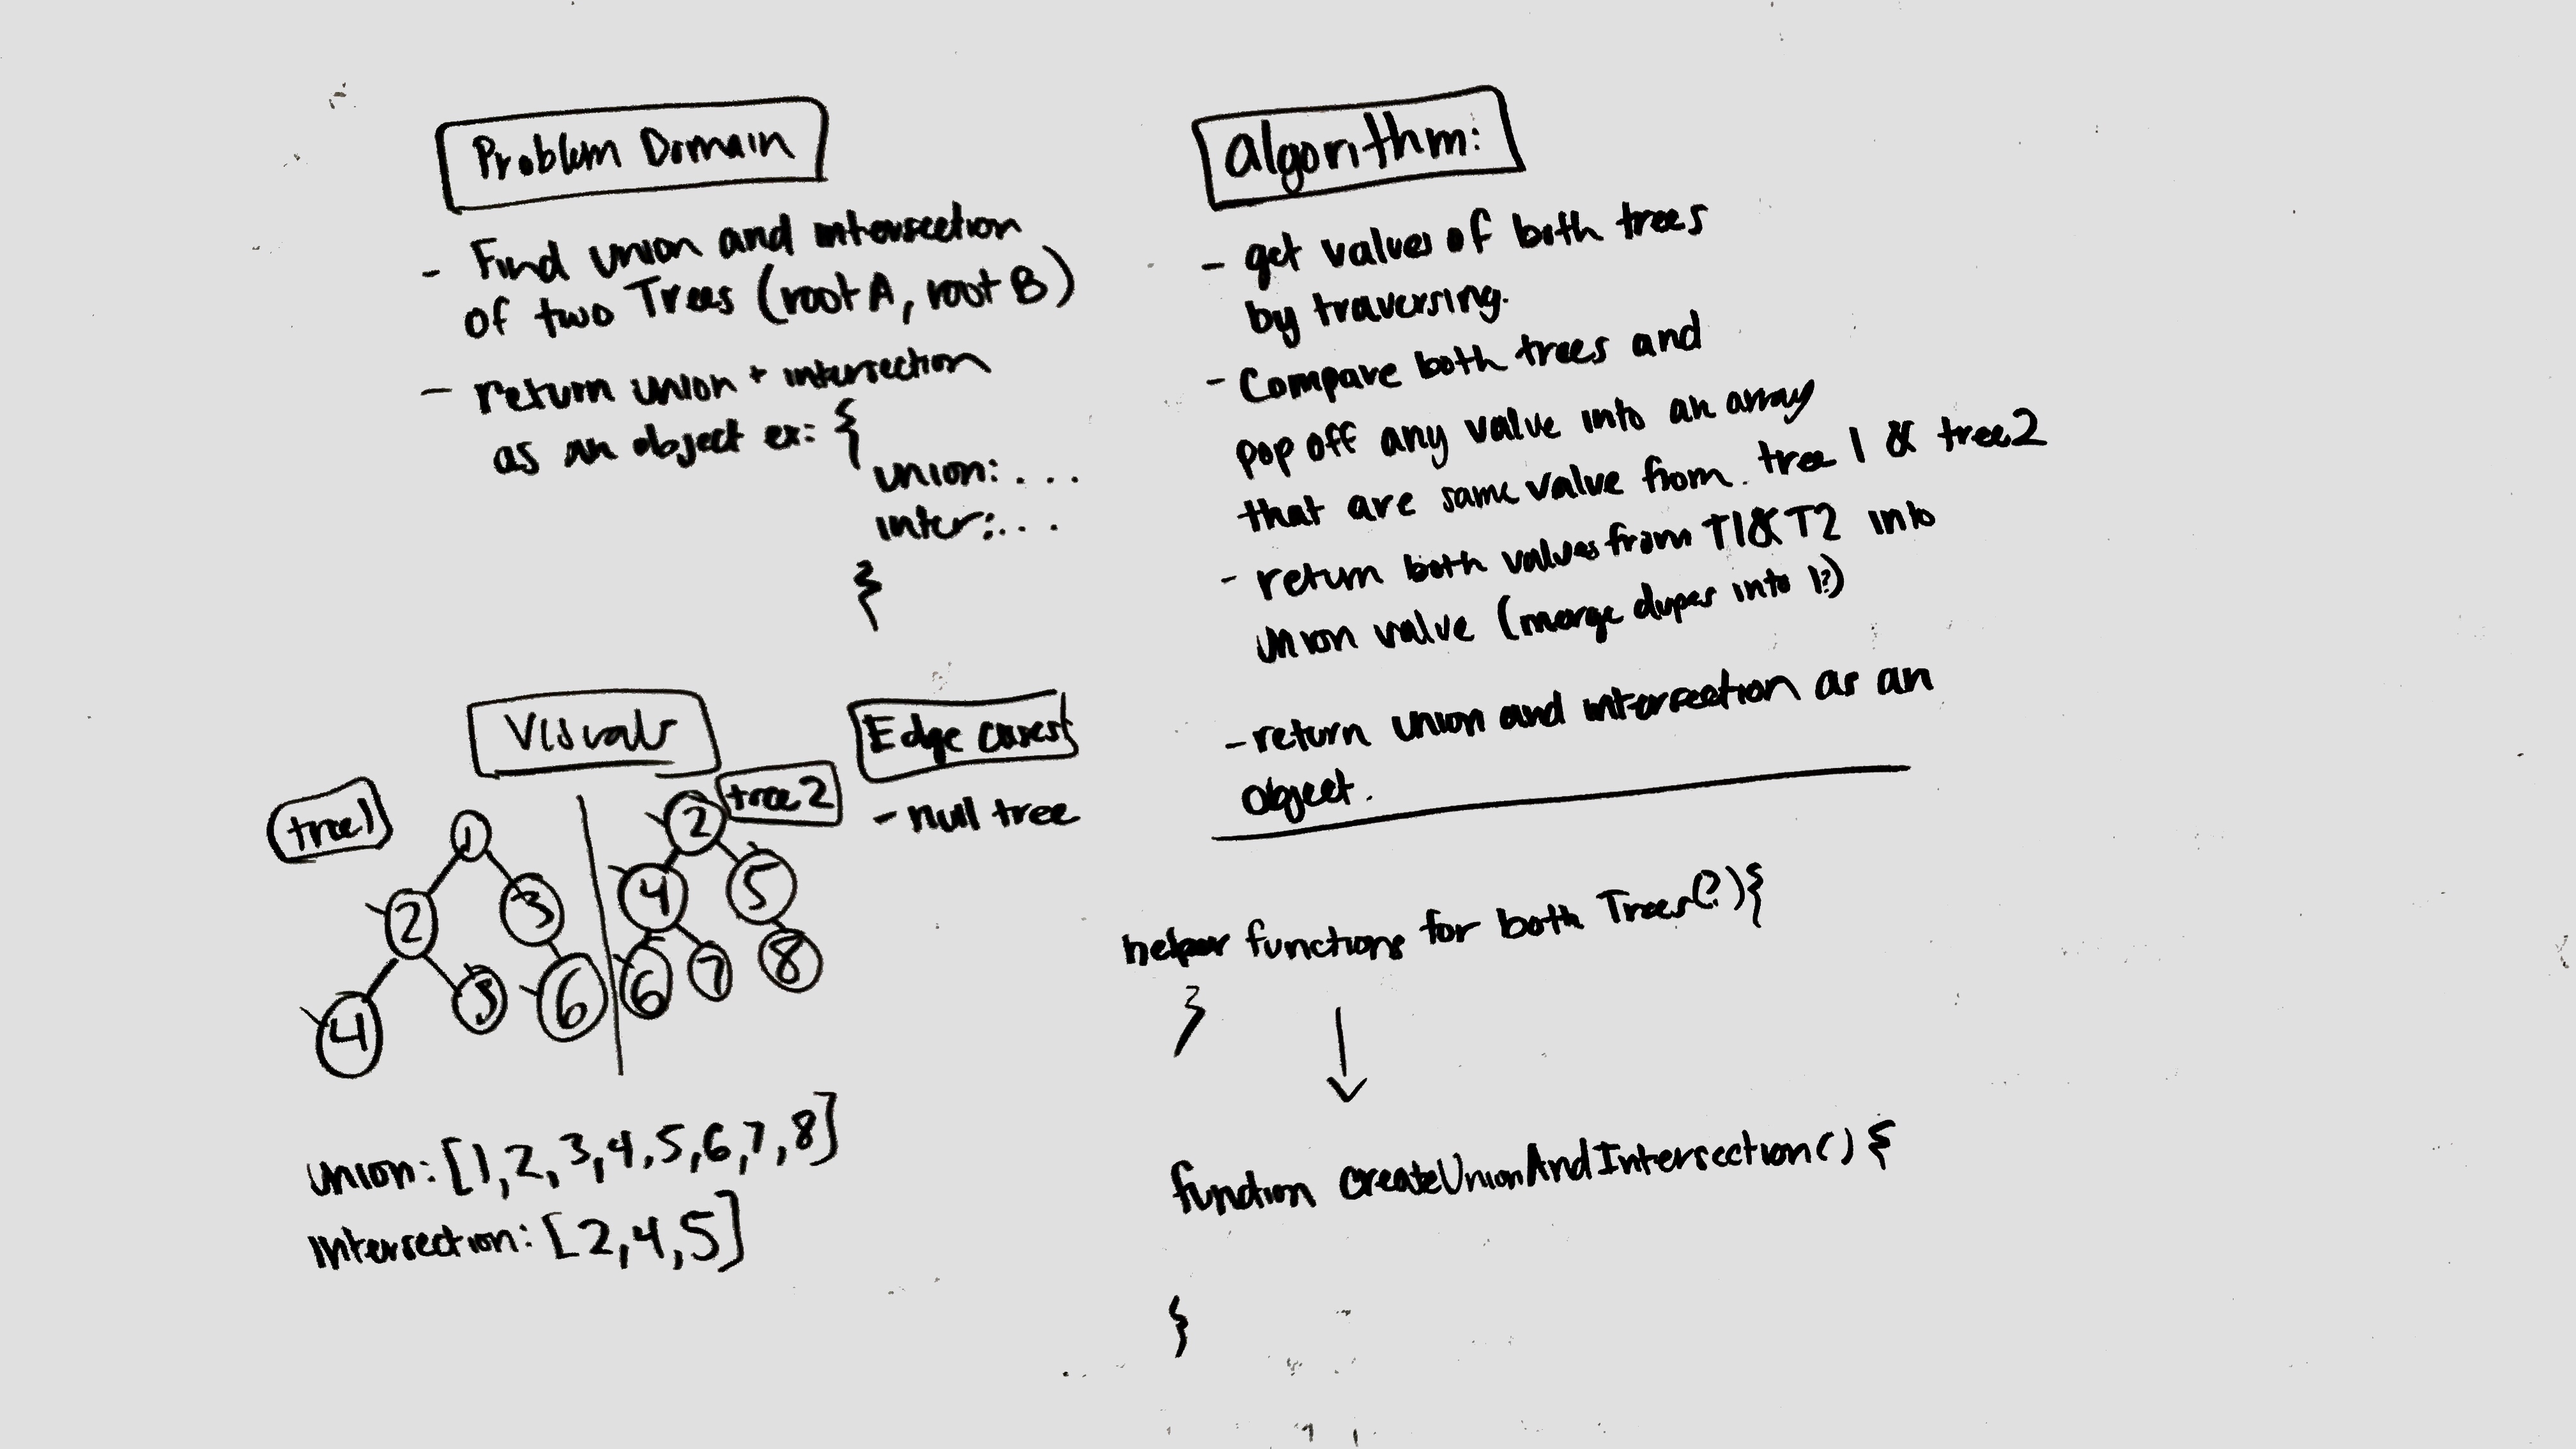 Problem Domain
- Find union and intersection
of two Trees (root A, root B)
- return union + intersection
as an object ex: {
union: ...
inter: ...
}
Visuals
tree1
1
2 3
4 5 6
tree2
2
4 5
6 7 8
union: [1,2,3,4,5,6,7,8]
intersection: [2,4,5]
Edge cases
- null tree
algorithm:
- get values of both trees
by traversing.
- Compare both trees and
pop off any value into an array
that are same value from tree 1 & tree2
- return both values from T1&T2 into
union value (merge dupes into 1?)
- return union and intersection as an
object.
helper functions for both Trees(?){
}
function createUnionAndIntersection() {
}